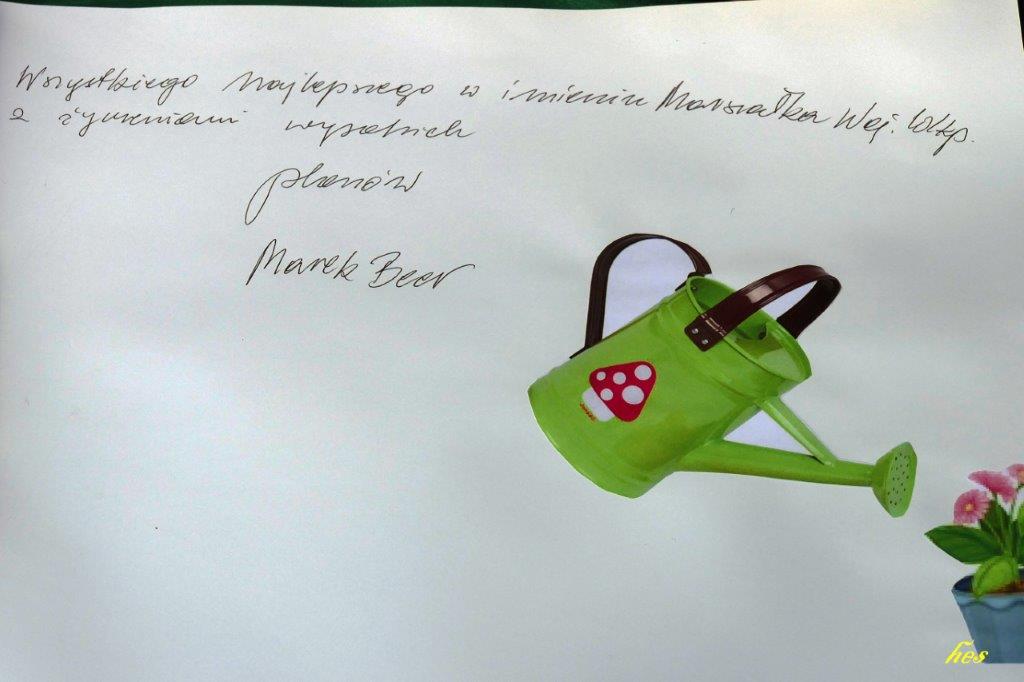 Wszystkiego Najlepszego w imieniu Marszałka Woj. Wlkp.
z życzeniami wysokich
plonów
Marek Beer
hes